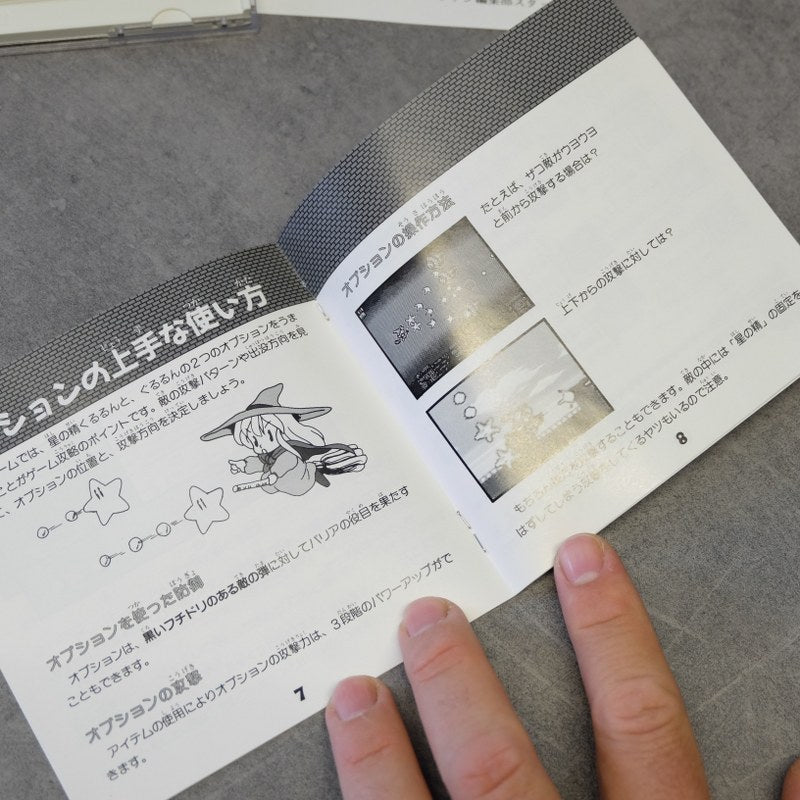 ションの上手な使い方
ームでは、星の精くるるんと、ぐるるんの2つのオプションをうま
ことがゲーム攻略のポイントです。敵の攻撃パターンや出没方向を見
、オプションの位置と、攻撃方向を決定しましょう。
オプションを使った防備
オプションは、黒いフチドリのある敵の弾に対してバリアの役目を果たす
こともできます。
オプションの攻撃
アイテムの使用によりオプションの攻撃力は、3段階のパワーアップがで
きます。
7
オプションの操作方法
たとえば、ザコ敵がウヨウヨ
と前から攻撃する場合は?
上下からの攻撃に対しては?
もちろん
することもできます。敵の中には「星の精」の固定を
はずしてしまう攻撃をしてくるヤツもいるので注意。
8